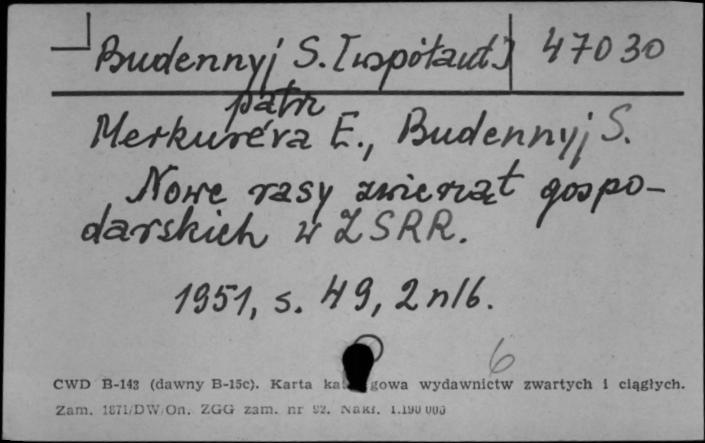 Budennyj S. [współaut.] 47030
patrz
Merkur'eva E., Budennyj S.
Nowe rasy zwierząt gospo-
darskich w ZSRR.
1951, s. 49, 2 nlb.
6
CWD B-143 (dawny B-15c). Karta ka gowa wydawnictw zwartych i ciągłych.
Zam. 1871/DW/On. ZGG zam. nr 92. Nakł. 1.190 000